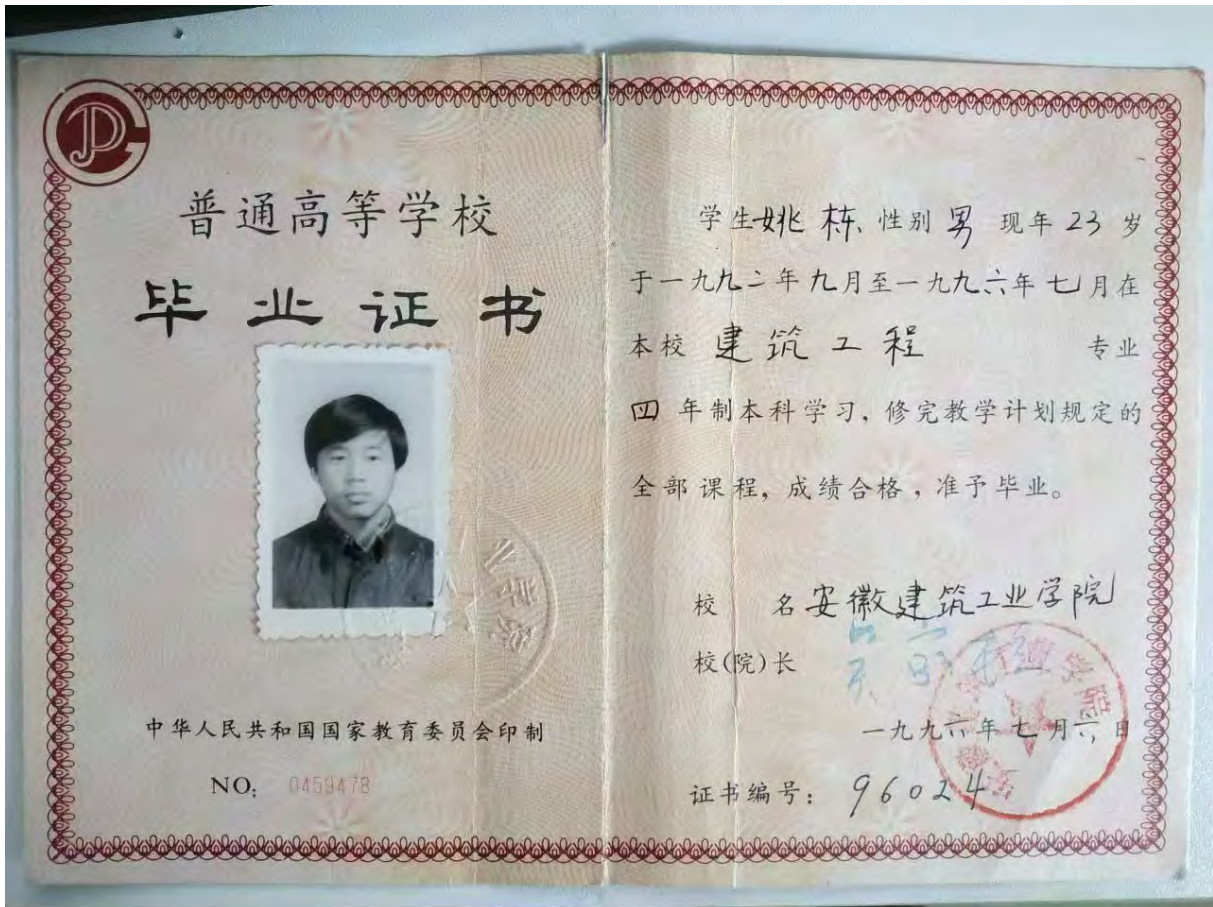 普通高等学校
毕业证书
中华人民共和国国家教育委员会印制
NO: 0459478
学生 姚栋 性别 男 现年 23 岁
于一九九二年九月至一九九六年七月在
本校 建筑工程 专业
四 年制本科学习，修完教学计划规定的
全部课程，成绩合格，准予毕业。
校 名 安徽建筑工业学院
校(院)长
一九九六年七月六日
证书编号： 96024